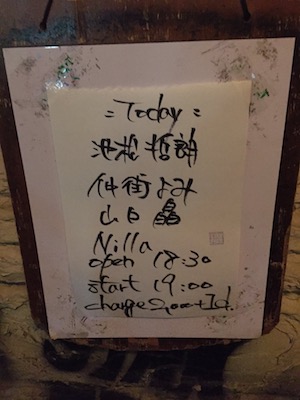 =Today=
池松 哲朗
仲街よみ
山口 晶
Nilla
open 18:30
start 19:00
charge 2,000+1d.